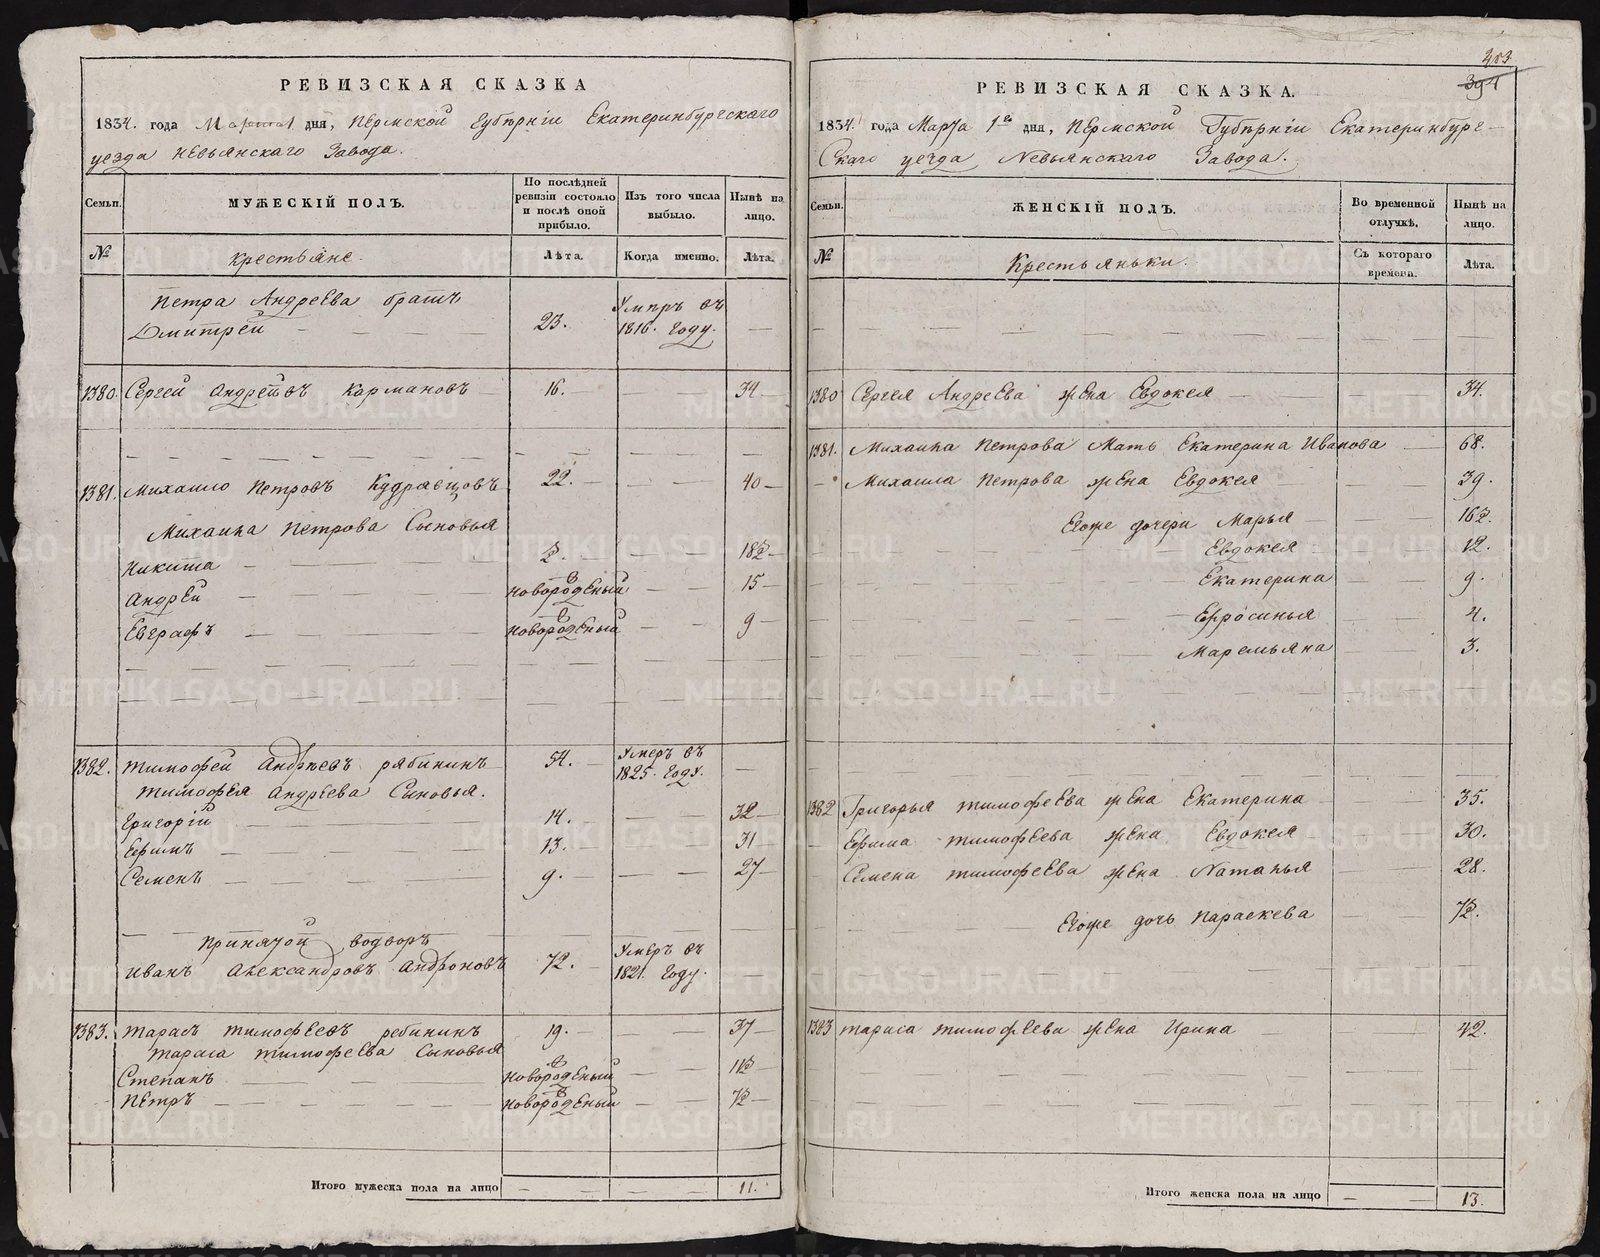 РЕВИЗСКАЯ СКАЗКА
1834. года Марта 1 дня, Пермской Губѣрніи Екатеринбургскаго
уезда Невьянскаго Завода.
Семьи.
МУЖЕСКІЙ ПОЛЪ.
По послѣдней
ревизіи состояло
и послѣ оной
прибыло.
Изъ того числа
выбыло.
Нынѣ на
лицо.
№
крестьяне.
Лѣта.
Когда именно.
Лѣта.
Петра Андреева братъ
Дмитрей 23. Умиръ въ
1816. Году.
1380. Сергей Андреевъ Кормановъ 16. 34
1381. Михаило Петровъ Кудрявцовъ 22. 40
Михаила Петрова Сыновья
Никита ½. 18½
Андрей новорожденый 15
Евграфъ новорожденый 9
1382. Тимофей Андреевъ рябининъ 54. Умеръ въ
1825. Году.
Тимофея Андреева Сыновья.
Григорій 14. 32
Ефимъ 13. 31
Семенъ 9. 27
Принятой водворъ
Иванъ Александровъ Андроновъ 72. Умеръ въ
1821. Году.
1383. Тарасъ Тимофеевъ ребининъ 19. 37
Тараса Тимофеева Сыновья
Степанъ новорожденый 1½
Петръ новорожденый ½
Итого мужеска пола на лицо 11.
353
394
РЕВИЗСКАЯ СКАЗКА.
1834. года Марта 1го дня, Пермской Губѣрніи Екатеринбург-
Скаго уезда Невьянскаго Завода.
Семьи.
ЖЕНСКІЙ ПОЛЪ.
Во временной
отлучкѣ.
Нынѣ на
лицо.
№
Крестьяньки.
Съ котораго
времена.
Лѣта.
1380 Сергея Андреева жена Евдокея 34.
1381. Михаила Петрова Мать Екатерина Иванова 68.
Михаила Петрова жена Евдокея 39.
Егоже дочери Марья 16½.
Евдокея 12.
Екатерина 9.
Ефросинья 4.
Маремьяна 3.
1382 Григорья Тимофеева жена Екатерина 35.
Ефима Тимофеева жена Евдокея 30.
Семена Тимофеева жена Наталья 28.
Егоже дочь Параскева ½.
1383 Тараса Тимофеева жена Ирина 42.
Итого женска пола на лицо 13.
METRIKI.GASO-URAL.RU